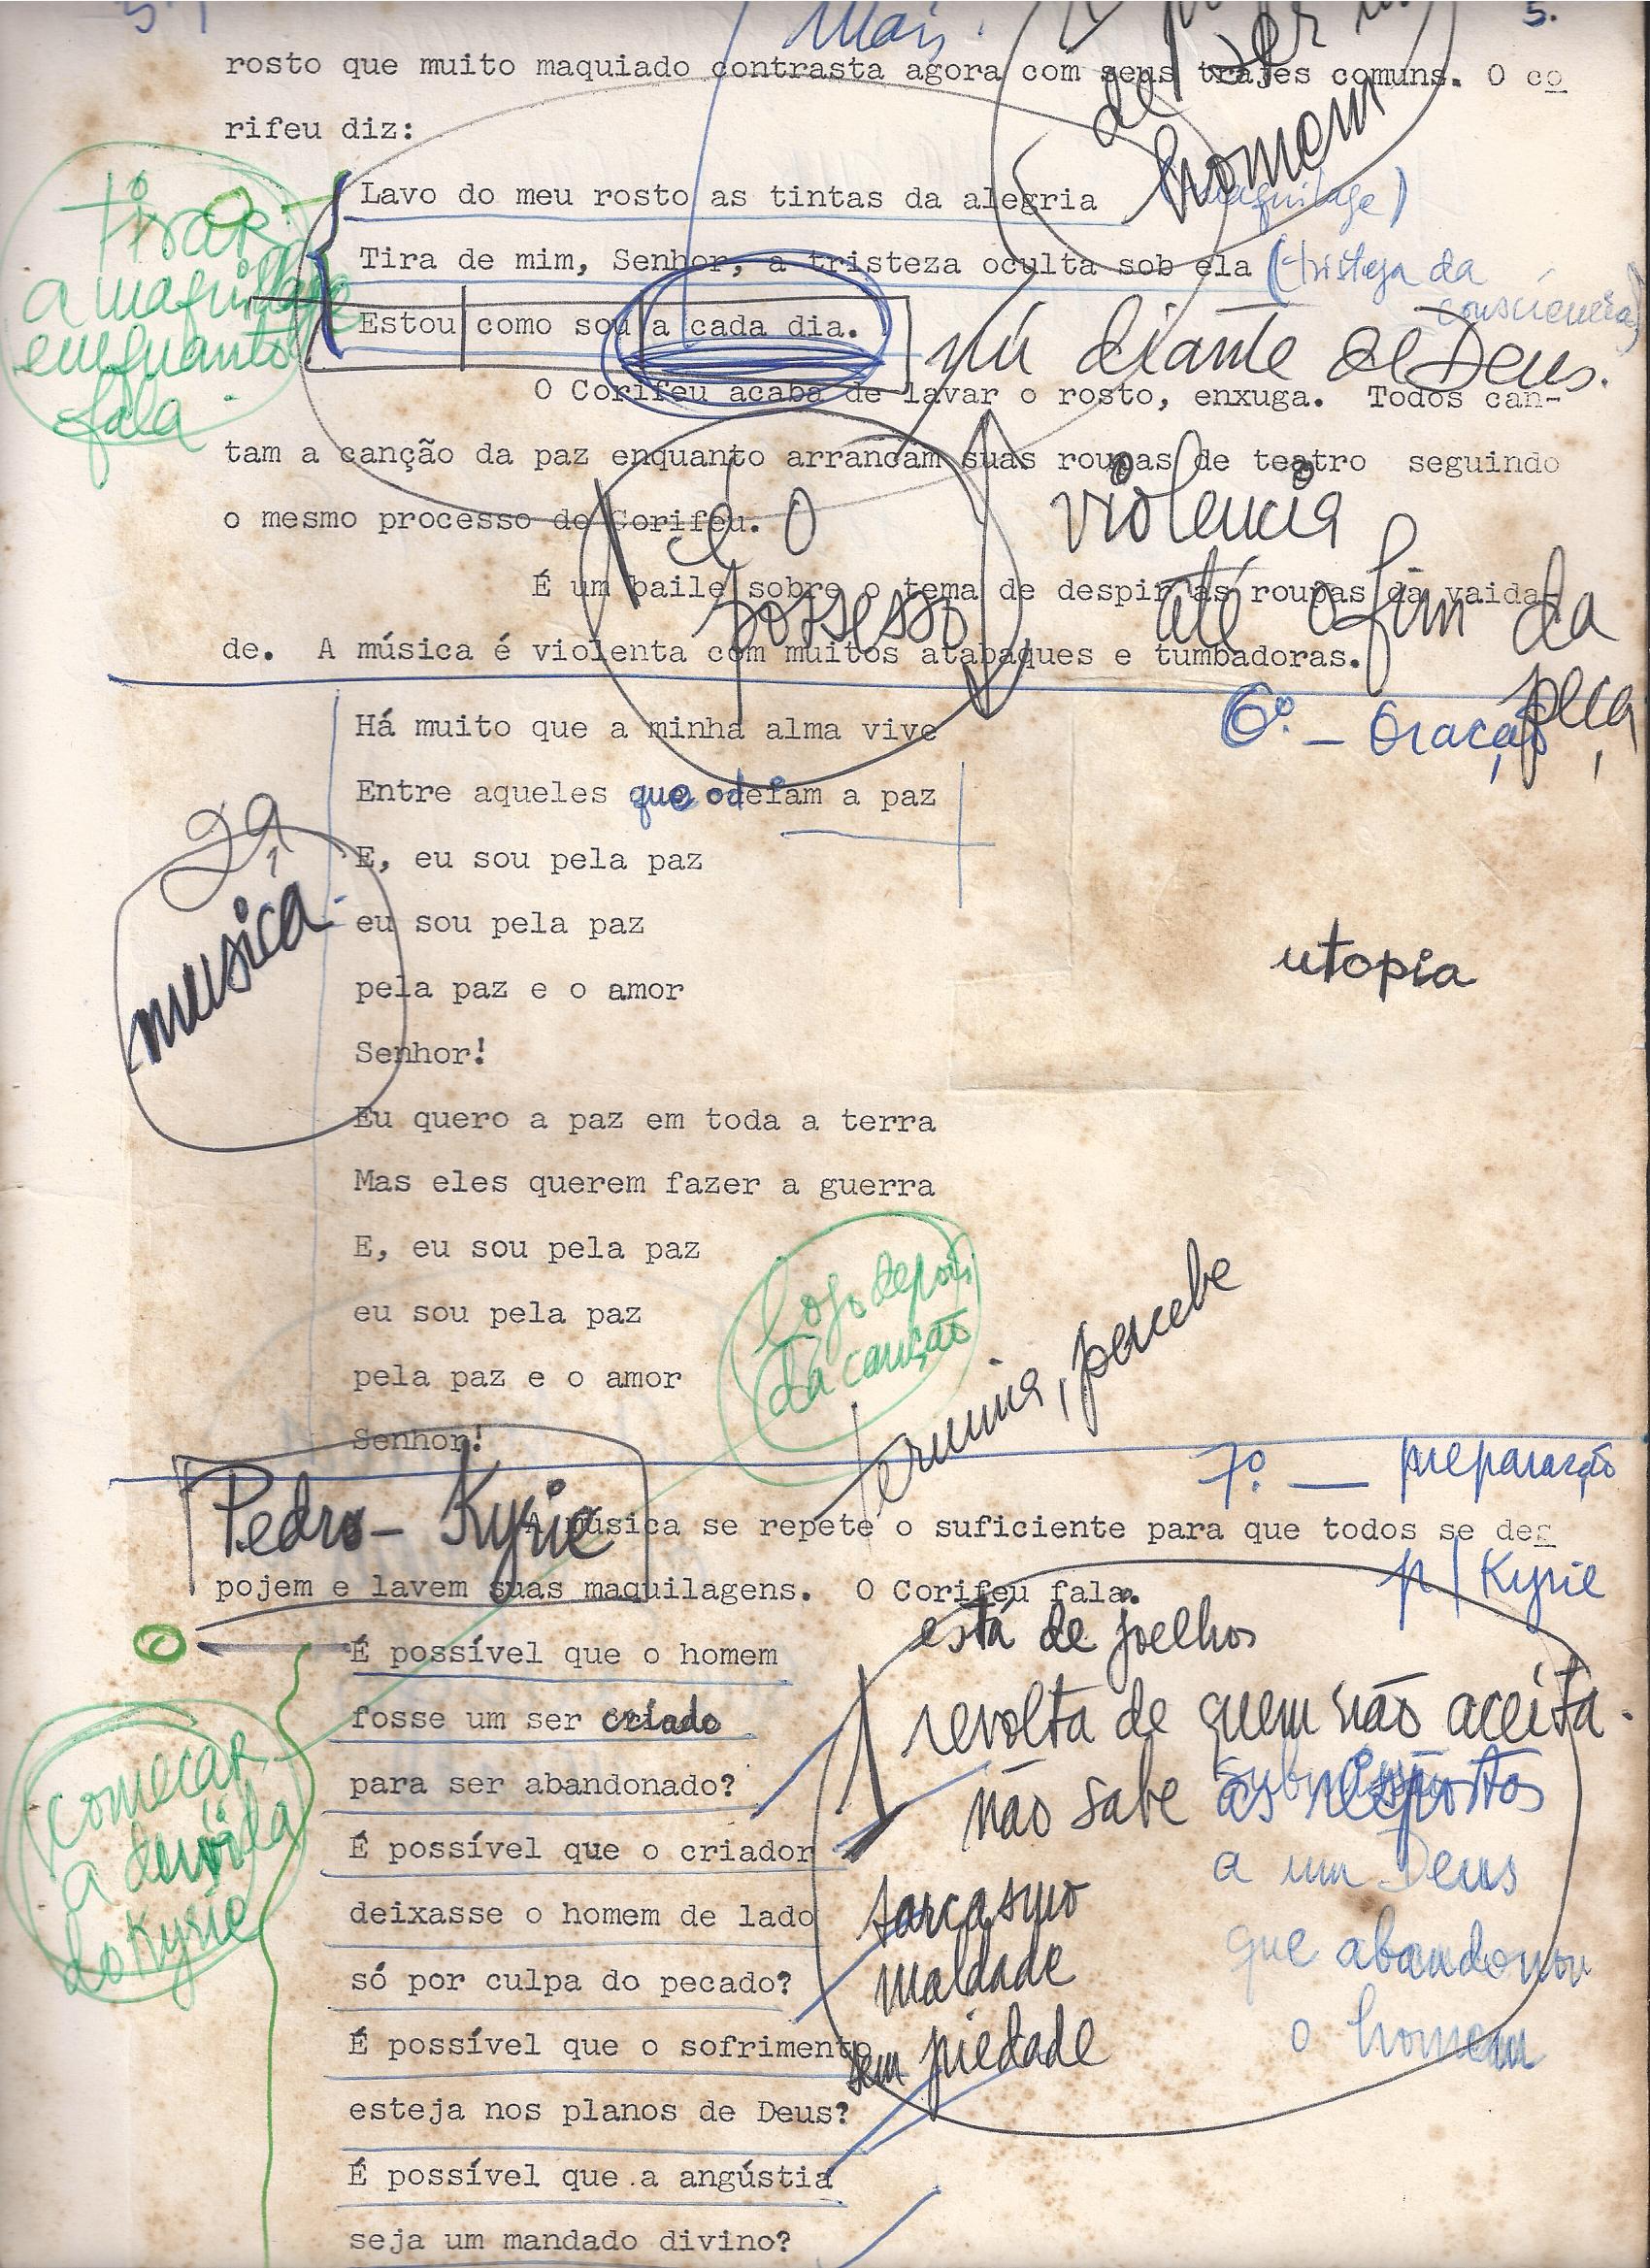 5.
Mais.
rosto que muito maquiado contrasta agora com seus trajes comuns. O co
de
homem
rifeu diz:
Lavo do meu rosto as tintas da alegria
(maquilage)
Tira de mim, Senhor, a tristeza oculta sob ela
(tristeza da
consciência)
tirar
a maquilage
enquanto
fala.
Estou como sou a cada dia.
nú diante de Deus.
O Corifeu acaba de lavar o rosto, enxuga. Todos can-
tam a canção da paz enquanto arrancam suas roupas de teatro seguindo
o mesmo processo do Corifeu.
é O
possesso
violencia
até o fim da
peça
É um baile sobre o tema de despir as roupas da vaida-
de. A música é violenta com muitos atabaques e tumbadoras.
6º. — Oração
Há muito que a minha alma vive
Entre aqueles que odeiam a paz
2ª
musica
E, eu sou pela paz
eu sou pela paz
utopia
pela paz e o amor
Senhor!
Eu quero a paz em toda a terra
Mas eles querem fazer a guerra
E, eu sou pela paz
eu sou pela paz
logo depois
da canção
termina, percebe
pela paz e o amor
Senhor!
7º. — preparação
p/ Kyrie
Pedro - Kyrie
A música se repete o suficiente para que todos se des
pojem e lavem suas maquilagens. O Corifeu fala.
está de joelhos
É possível que o homem
fosse um ser criado
revolta de quem não aceita.
para ser abandonado?
não sabe as respostas
começar
a
do Kyrie
É possível que o criador
a um Deus
deixasse o homem de lado
sarcasmo
que abandonou
só por culpa do pecado?
maldade
o homem
É possível que o sofrimento
sem piedade
esteja nos planos de Deus?
É possível que a angústia
seja um mandado divino?